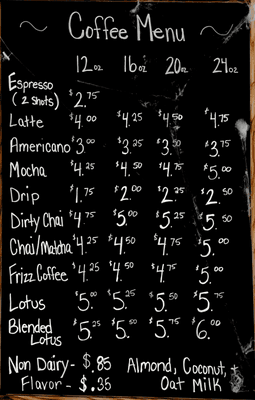 Coffee Menu
12oz 16oz 20oz 24oz
Espresso
(2 shots) $2.75
Latte $4.00 $4.25 $4.50 $4.75
Americano $3.00 $3.25 $3.50 $3.75
Mocha $4.25 $4.50 $4.75 $5.00
Drip $1.75 $2.00 $2.25 $2.50
Dirty Chai $4.75 $5.00 $5.25 $5.50
Chai/Matcha $4.25 $4.50 $4.75 $5.00
Frizz Coffee $4.25 $4.50 $4.75 $5.00
Lotus $5.00 $5.25 $5.50 $5.75
Blended
Lotus $5.25 $5.50 $5.75 $6.00
Non Dairy - $.85 Almond, Coconut, +
Flavor - $.35 Oat Milk